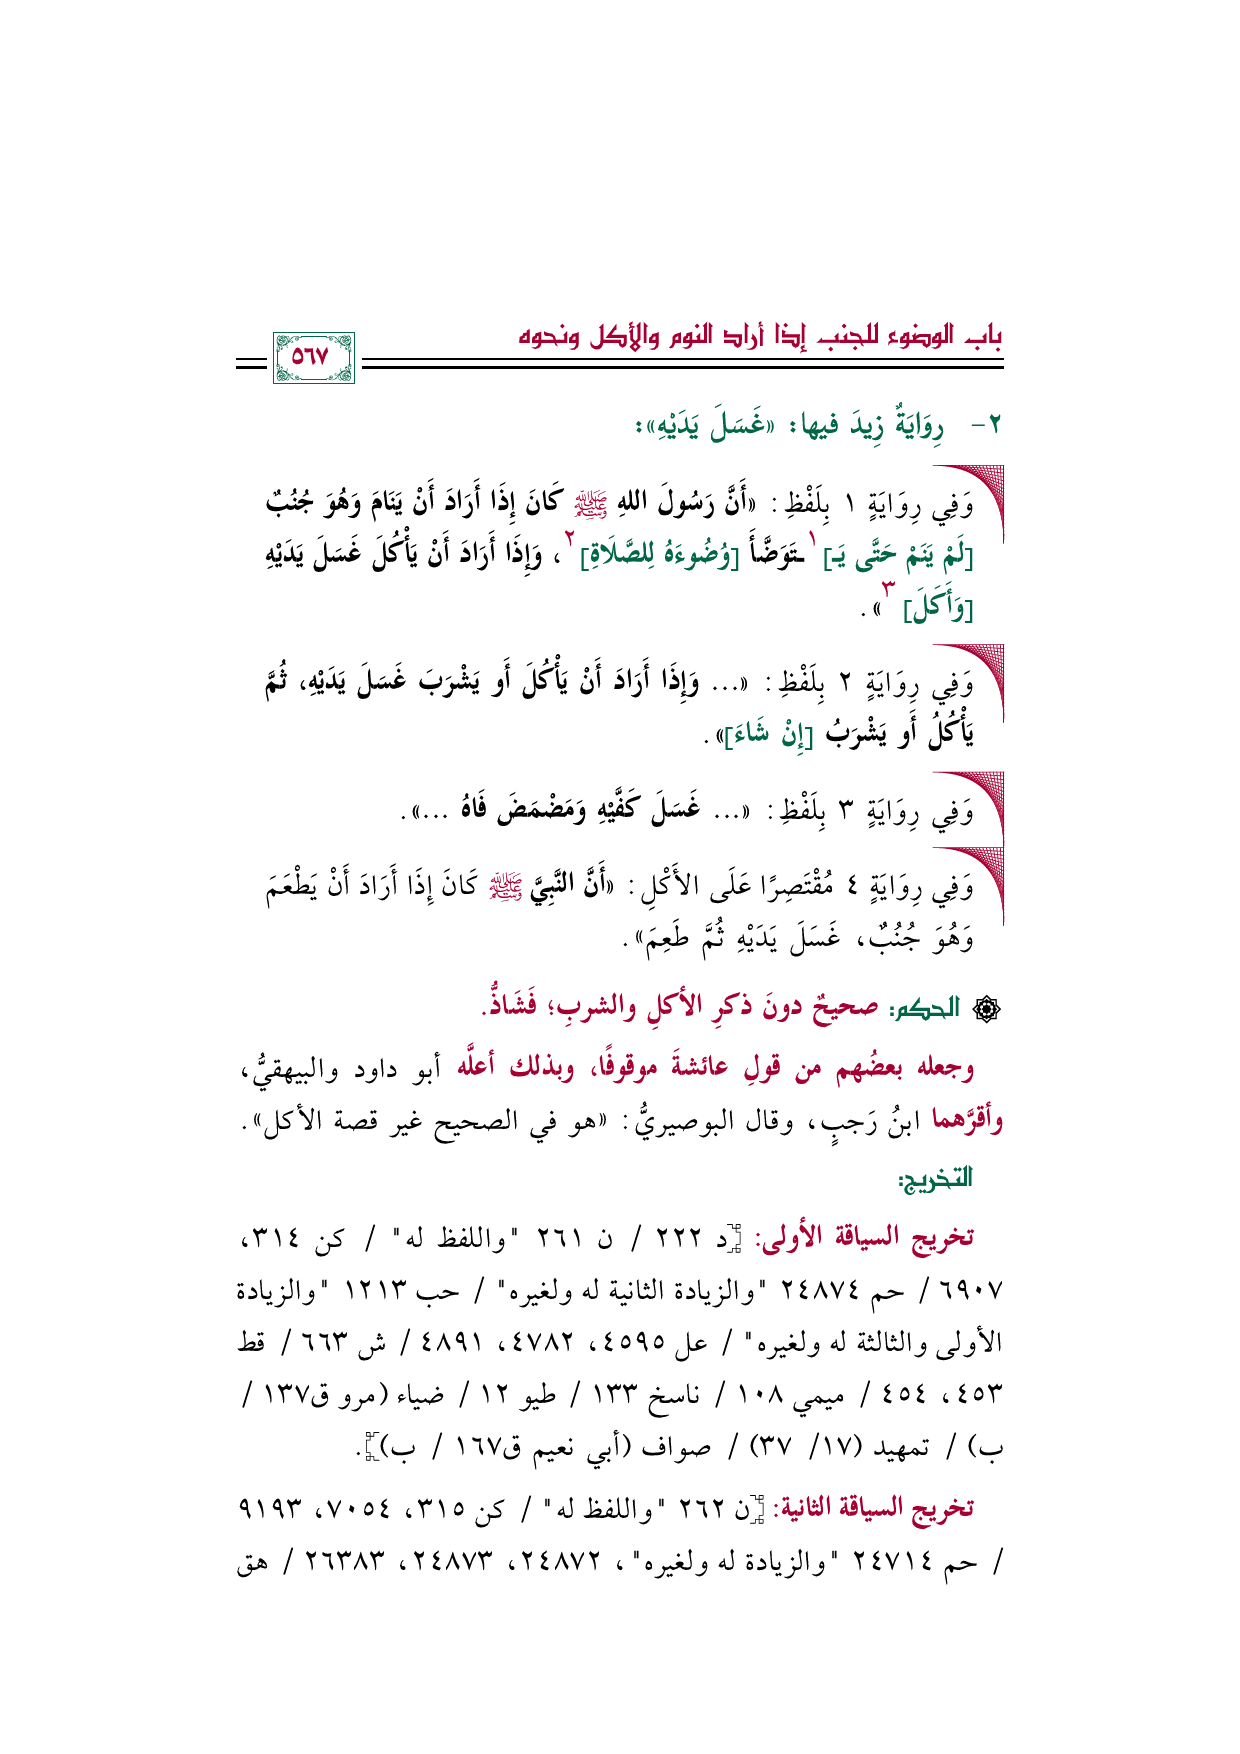 باب الوضوء للجنب إذا أراد النوم والأكل ونحوه
٥٦٧
٢- رِوَايَةٌ زِيدَ فيها: «غَسَلَ يَدَيْهِ»:
وَفِي رِوَايَةٍ ١ بِلَفْظِ: «أَنَّ رَسُولَ اللهِ ﷺ كَانَ إِذَا أَرَادَ أَنْ يَنَامَ وَهُوَ جُنُبٌ
[لَمْ يَنَمْ حَتَّى يَـ]١ـتَوَضَّأَ [وُضُوءَهُ لِلصَّلَاةِ]٢، وَإِذَا أَرَادَ أَنْ يَأْكُلَ غَسَلَ يَدَيْهِ
[وَأَكَلَ]٣».
وَفِي رِوَايَةٍ ٢ بِلَفْظِ: «... وَإِذَا أَرَادَ أَنْ يَأْكُلَ أَو يَشْرَبَ غَسَلَ يَدَيْهِ، ثُمَّ
يَأْكُلُ أَو يَشْرَبُ [إِنْ شَاءَ]».
وَفِي رِوَايَةٍ ٣ بِلَفْظِ: «... غَسَلَ كَفَّيْهِ وَمَضْمَضَ فَاهُ ...».
وَفِي رِوَايَةٍ ٤ مُقْتَصِرًا عَلَى الأَكْلِ: «أَنَّ النَّبِيَّ ﷺ كَانَ إِذَا أَرَادَ أَنْ يَطْعَمَ
وَهُوَ جُنُبٌ، غَسَلَ يَدَيْهِ ثُمَّ طَعِمَ».
الحكم: صحيحٌ دونَ ذكرِ الأكلِ والشربِ؛ فَشَاذٌّ.
وجعله بعضُهم من قولِ عائشةَ موقوفًا، وبذلك أعلَّه أبو داود والبيهقيُّ،
وأقرَّهما ابنُ رَجبٍ، وقال البوصيريُّ: «هو في الصحيح غير قصة الأكل».
التخريج:
تخريج السياقة الأولى: [د ٢٢٢ / ن ٢٦١ "واللفظ له" / كن ٣١٤،
٦٩٠٧ / حم ٢٤٨٧٤ "والزيادة الثانية له ولغيره" / حب ١٢١٣ "والزيادة
الأولى والثالثة له ولغيره" / عل ٤٥٩٥، ٤٧٨٢، ٤٨٩١ / ش ٦٦٣ / قط
٤٥٣، ٤٥٤ / ميمي ١٠٨ / ناسخ ١٣٣ / طيو ١٢ / ضياء (مرو ق١٣٧ /
ب) / تمهيد (١٧/ ٣٧) / صواف (أبي نعيم ق١٦٧ / ب)].
تخريج السياقة الثانية: [ن ٢٦٢ "واللفظ له" / كن ٣١٥، ٧٠٥٤، ٩١٩٣
/ حم ٢٤٧١٤ "والزيادة له ولغيره"، ٢٤٨٧٢، ٢٤٨٧٣، ٢٦٣٨٣ / هق